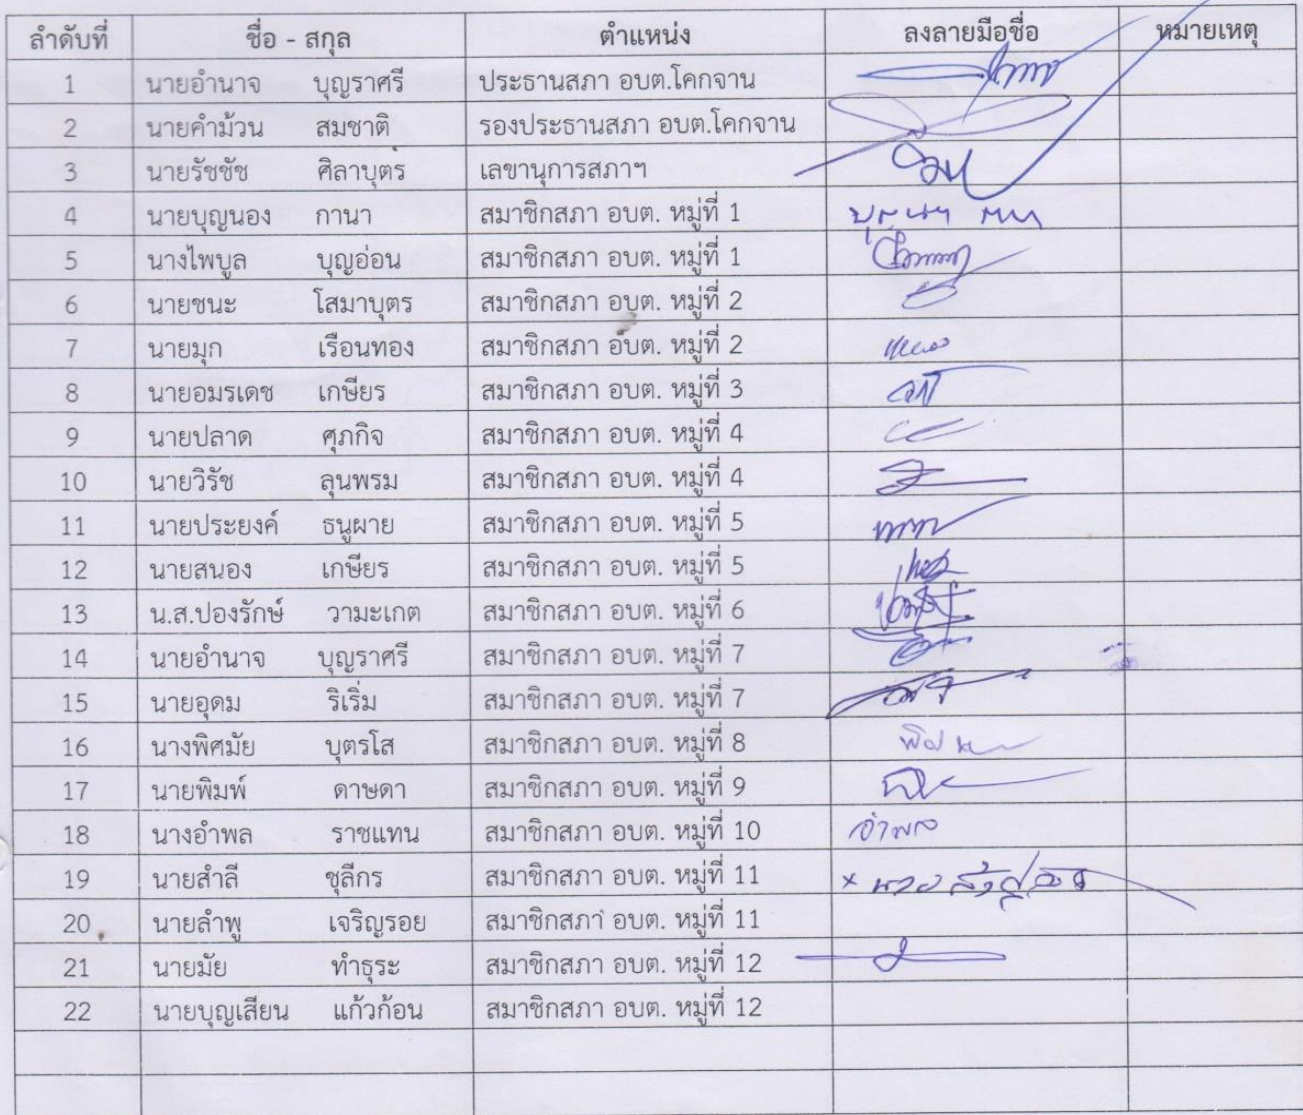 ลำดับที่ ชื่อ - สกุล ตำแหน่ง ลงลายมือชื่อ หมายเหตุ
1 นายอำนาจ บุญราศรี ประธานสภา อบต.โคกจาน
2 นายคำม้วน สมชาติ รองประธานสภา อบต.โคกจาน
3 นายรัชชัช ศิลาบุตร เลขานุการสภาฯ
4 นายบุญนอง กานา สมาชิกสภา อบต. หมู่ที่ 1
5 นางไพบูล บุญอ่อน สมาชิกสภา อบต. หมู่ที่ 1
6 นายชนะ โสมาบุตร สมาชิกสภา อบต. หมู่ที่ 2
7 นายมุก เรือนทอง สมาชิกสภา อบต. หมู่ที่ 2
8 นายอมรเดช เกษียร สมาชิกสภา อบต. หมู่ที่ 3
9 นายปลาด ศุภกิจ สมาชิกสภา อบต. หมู่ที่ 4
10 นายวิรัช ลุนพรม สมาชิกสภา อบต. หมู่ที่ 4
11 นายประยงค์ ธนูผาย สมาชิกสภา อบต. หมู่ที่ 5
12 นายสนอง เกษียร สมาชิกสภา อบต. หมู่ที่ 5
13 น.ส.ปองรักษ์ วามะเกต สมาชิกสภา อบต. หมู่ที่ 6
14 นายอำนาจ บุญราศรี สมาชิกสภา อบต. หมู่ที่ 7
15 นายอุดม ริเริ่ม สมาชิกสภา อบต. หมู่ที่ 7
16 นางพิศมัย บุตรโส สมาชิกสภา อบต. หมู่ที่ 8
17 นายพิมพ์ ดาษดา สมาชิกสภา อบต. หมู่ที่ 9
18 นางอำพล ราชแทน สมาชิกสภา อบต. หมู่ที่ 10 อำพล
19 นายสำลี ชุลีกร สมาชิกสภา อบต. หมู่ที่ 11
20 นายลำพู เจริญรอย สมาชิกสภา อบต. หมู่ที่ 11
21 นายมัย ทำธุระ สมาชิกสภา อบต. หมู่ที่ 12
22 นายบุญเสียน แก้วก้อน สมาชิกสภา อบต. หมู่ที่ 12